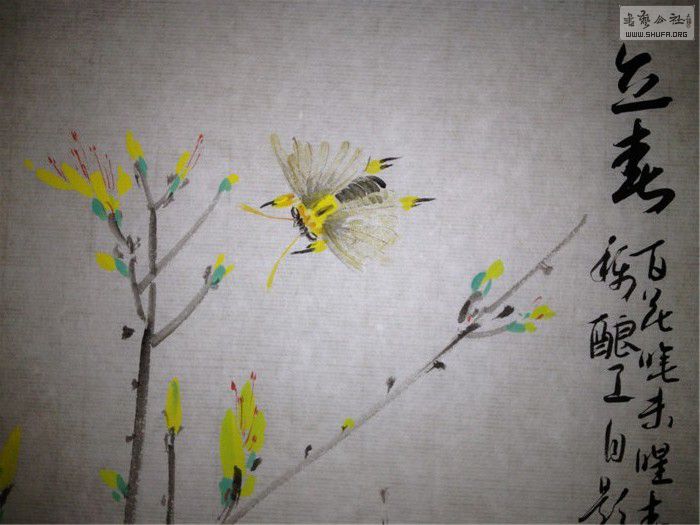 書藝公社
WWW.SHUFA.ORG
立春
百花睡未醒春
酿工自题